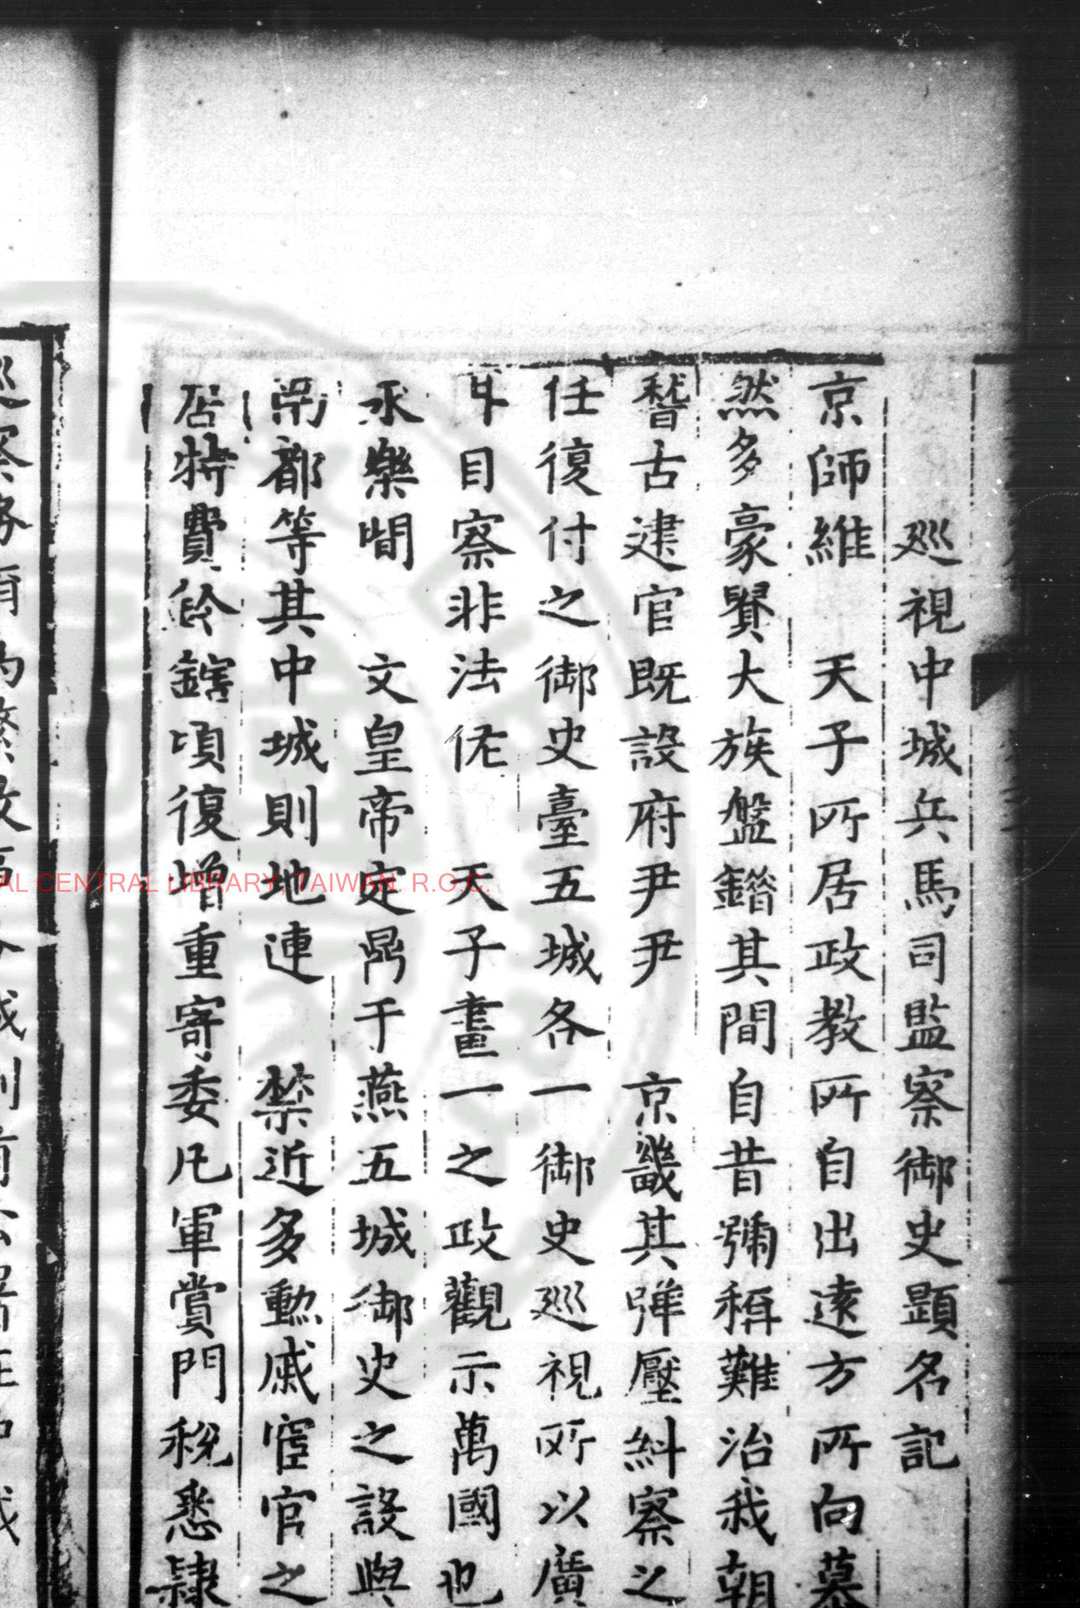 巡視中城兵馬司監察御史題名記
京師維 天子所居政教所自出遠方所向慕
然多豪賢大族盤錯其間自昔號稱難治我朝
稽古建官既設府尹尹 京畿其彈壓糾察之
任復付之御史臺五城各一御史巡視所以廣
耳目察非法佐 天子畫一之政觀示萬國也
永樂間 文皇帝定鼎于燕五城御史之設與
兩都等其中城則地連 禁近多勳戚宦官之
居特費鈐轄頃復增重寄委凡軍賞門稅悉隸
CENTRAL LIBRARY, TAIWAN. R.O.C.